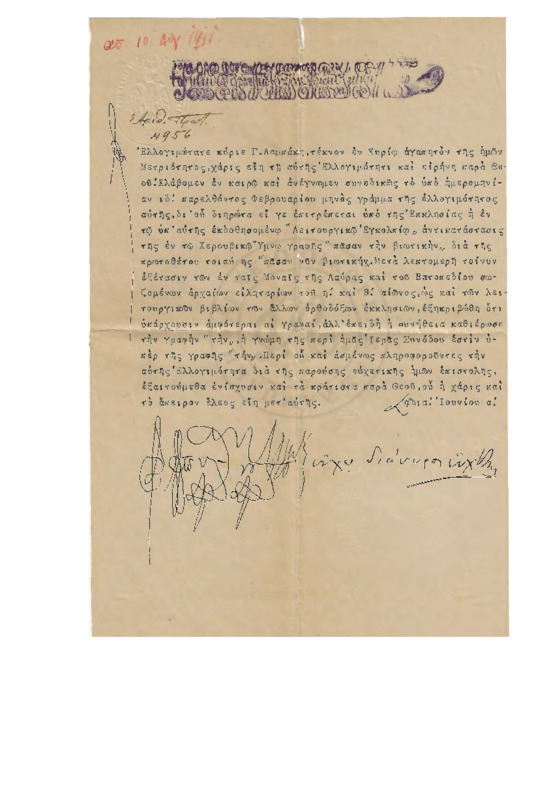 10 Αυγ 1911
Ἀριθ. Πρωτ.
4956
Ἐλλογιμώτατε κύριε Γ. Λαμπάκη, τέκνον ἐν Κυρίῳ ἀγαπητὸν τῆς ἡμῶν
Μετριότητος, χάρις εἴη τῇ αὐτῆς Ἐλλογιμότητι καὶ εἰρήνη παρὰ Θε-
οῦ. Ἐλάβομεν ἐν καιρῷ καὶ ἀνέγνωμεν συνοδικῶς τὸ ὑπὸ ἡμερομηνί-
αν ιδ΄. παρελθόντος Φεβρουαρίου μηνὸς γράμμα τῆς ἐλλογιμότητος
αὐτῆς, δι' οὗ διηρώτα εἴ γε ἐπιτρέπεται ὑπὸ τῆς Ἐκκλησίας ἡ ἐν
τῷ ὑπ' αὐτῆς ἐκδοθησομένῳ "Λειτουργικῷ Ἐγκολπίῳ„ ἀντικατάστασις
τῆς ἐν τῷ Χερουβικῷ Ὕμνῳ γραφῆς "πᾶσαν τὴν βιωτικήν„ διὰ τῆς
πρωτοθέτου τοιαύτης "πᾶσαν νῦν βιωτικήν„. Μετὰ λεπτομερῆ τοίνυν
ἐξέτασιν τῶν ἐν ταῖς Μοναῖς τῆς Λαύρας καὶ τοῦ Βατοπεδίου σω-
ζομένων ἀρχαίων εἰληταρίων τοῦ η΄. καὶ θ΄. αἰῶνος, ὡς καὶ τῶν λει-
τουργικῶν βιβλίων τῶν ἄλλων ὀρθοδόξων ἐκκλησιῶν, ἐξηκριβώθη ὅτι
ὑπάρχουσιν ἀμφότεραι αἱ γραφαί, ἀλλ' ἐπειδὴ ἡ συνήθεια καθιέρωσε
τὴν γραφὴν "τὴν„, ἡ γνώμη τῆς περὶ ἡμᾶς Ἱερᾶς Συνόδου ἐστὶν ὑ-
πὲρ τῆς γραφῆς "τὴν„. Περὶ οὗ καὶ ἀσμένως πληροφοροῦντες τὴν
αὐτῆς Ἐλλογιμότητα διὰ τῆς παρούσης εὐχετικῆς ἡμῶν ἐπιστολῆς,
ἐξαιτούμεθα ἐνίσχυσιν καὶ τὰ κράτιστα παρὰ Θεοῦ, οὗ ἡ χάρις καὶ
τὸ ἄπειρον ἔλεος εἴη μετ' αὐτῆς. Ἰουνίου α΄.
διάπυρος εὐχέτης